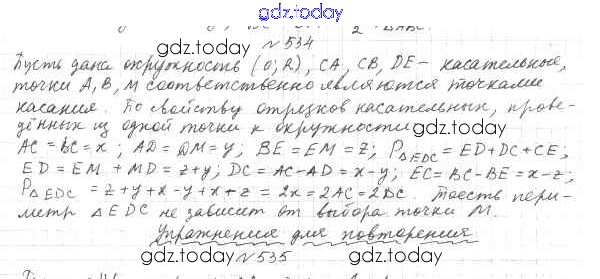 gdz.today
№534
gdz.today
Пусть дана окружность (O; R), CA, CB, DE - касательные,
gdz.today
точки A, B, M соответственно являются точками
касания. По свойству отрезков касательных, прове-
дённых из одной точки к окружности
gdz.today
AC = BC = x ; AD = DM = y; BE = EM = z; P△EDC = ED+DC+CE;
ED = EM + MD = z+y; DC = AC-AD = x-y; EC = BC-BE = x-z;
gdz.today
P△EDC = z+y+x-y+x+z = 2x = 2AC = 2BC. То есть пери-
метр △EDC не зависит от выбора точки M.
gdz.today
Упражнения для повторения
gdz.today
№535